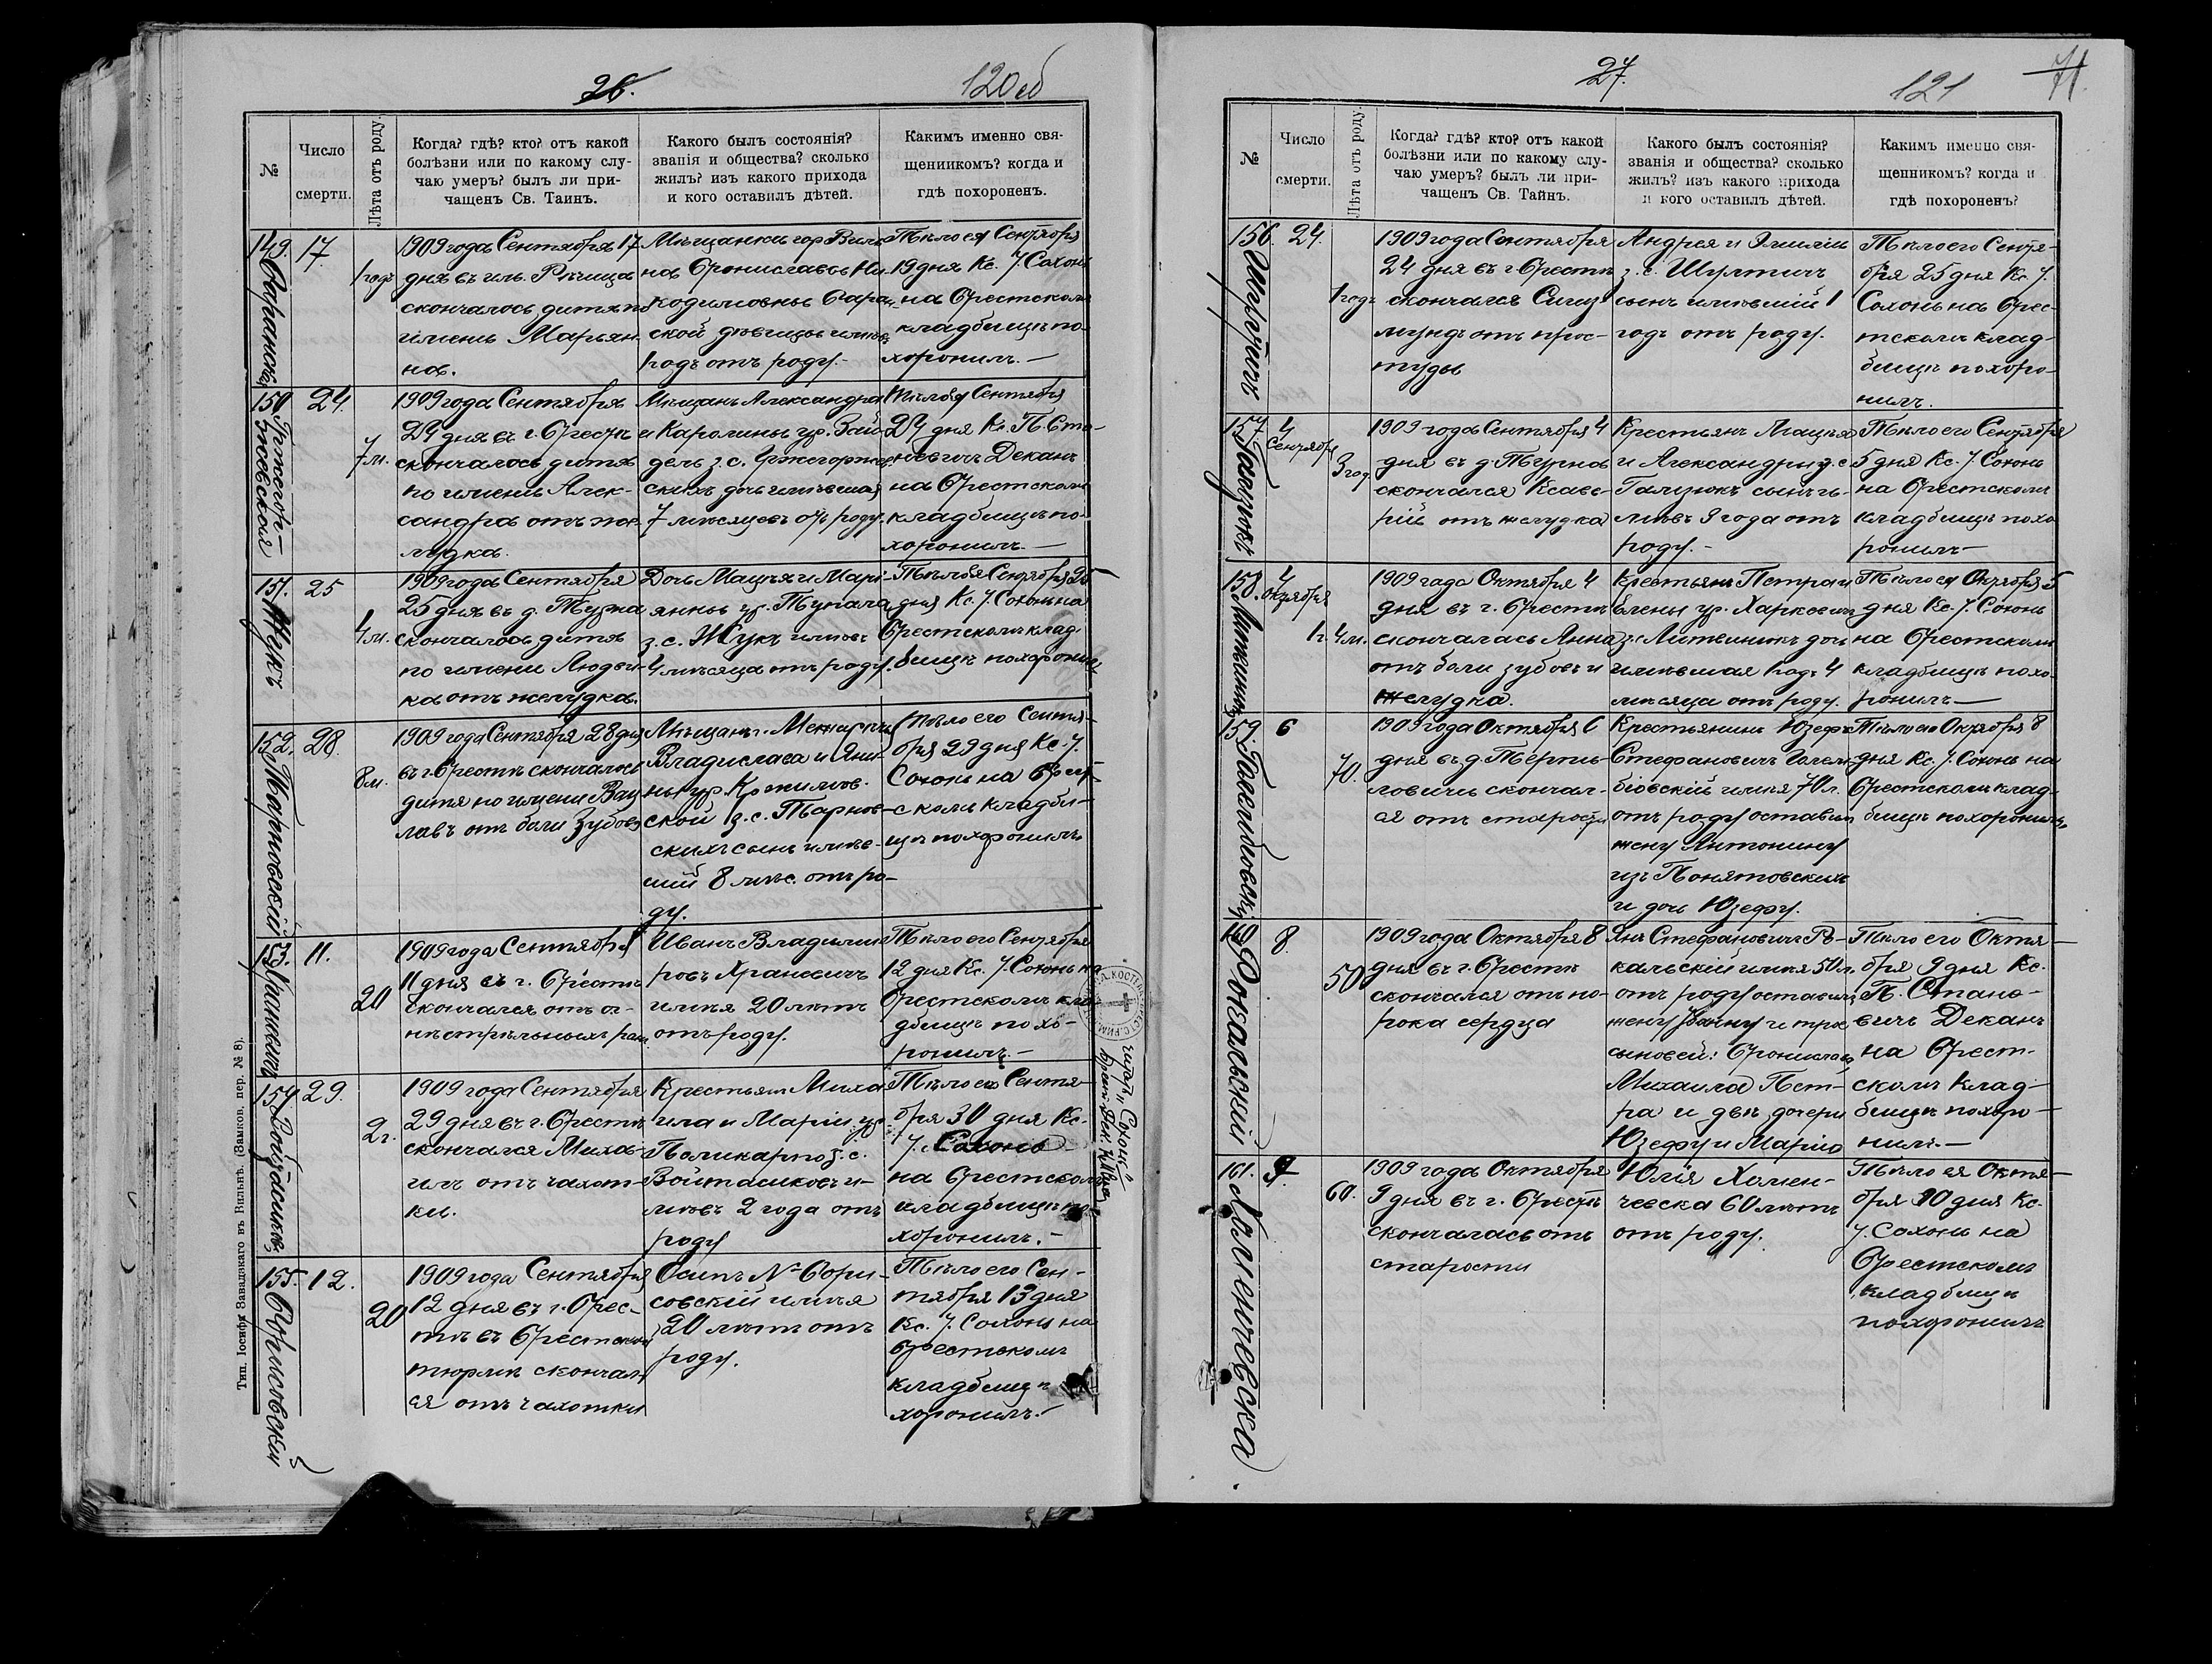 26.
120 об
№
Число
смерти.
Лѣта отъ роду.
Когда? гдѣ? кто? отъ какой
болѣзни или по какому слу-
чаю умеръ? былъ ли при-
чащенъ Св. Таинъ.
Какого былъ состоянія?
званія и общества? сколько
жилъ? изъ какого прихода
и кого оставилъ дѣтей.
Какимъ именно свя-
щенникомъ? когда и
гдѣ похороненъ.
149.
Баранская
17.
1 годъ
1909 года Сентября 17
дня въ им. Рѣчица
скончалось дитя по
имени Марьян-
на.
Мѣщанка гор Виль-
на Брониславы Ни-
кодимовны Баран-
ской дѣвицы имѣв
1 годъ отъ роду.-
Тѣло ея Сентября
19 дня Кс. У. Сохонь
на Брестскомъ
кладбищѣ по-
хоронилъ. —
150
Гржегор-
жевская
24.
7 м.
1909 года Сентября
24 дня въ г. Брестѣ
скончалось дитя
по имени Алек-
сандра отъ же-
лудка.
Мѣщанъ Александра
и Каролины ур. Зай-
дель з. с. Гржегорже-
скихъ дочь имѣвшая
7 мѣсяцевъ отъ роду.
Тѣло ея Сентября
27 дня Кс. П. Ста-
невичъ Деканъ
на Брестскомъ
кладбищѣ по-
хоронилъ. —
151.
Жукъ
25
4 м.
1909 года Сентября
25 дня въ д. Тузна
скончалось дитя
по имени Людви-
ка отъ желудка.
Дочь Мацѣя и Марі-
янны ур. Тупага
з. с. Жукъ имѣв
4 мѣсяца отъ роду.
Тѣло ея Сентября 25
дня Кс. У. Сохонь на
Брестскомъ клад-
бищѣ похоронилъ
152.
Тарновскій
28.
8 м.
1909 года Сентября 28 дня
въ г. Брестѣ скончалось
дитя по имени Вац
лавъ отъ боли зубовъ
Мѣщанъ г.
Владислава и Яни-
ны ур.
ской з. с. Тарнов-
скихъ сынъ имѣв-
шій 8 мѣс. отъ ро-
ду.
Тѣло его Сентя-
бря 29 дня Кс. У.
Сохонь на Брест-
скомъ кладби-
щѣ похоронилъ
153.
11.
20
1909 года Сентября
11 дня въ г. Брестѣ
скончался отъ ог-
нестрѣльныхъ ран
Иванъ Владими
ровъ Храневичъ
имѣя 20 лѣтъ
отъ роду.
Тѣло его Сентября
12 дня Кс. У. Сохонь на
Брестскомъ кла-
дбищѣ похо-
ронилъ. —
154
Войтасиковъ
29.
2 г.
1909 года Сентября
29 дня въ г. Брестѣ
скончался Миха-
илъ отъ чахот-
ки.
Крестьянъ Миха
ила и Маріи ур.
Поликарпо з. с.
Войтасиковъ и-
мѣвъ 2 года отъ
роду
Тѣло его Сентя-
бря 30 дня Кс.
У. Сохонь
на Брестскомъ
кладбищѣ по-
хоронилъ. —
155.
Борисовскій
12.
20
1909 года Сентября
12 дня въ г. Брес-
тѣ въ Брестской
тюрьмѣ скончал
ся отъ чахотки
Осипъ N Бори-
совскій имѣя
20 лѣтъ отъ
роду.
Тѣло его Сен-
тября 13 дня
Кс. У. Сохонь на
Брестскомъ
кладбищѣ
хоронилъ.—
Тип. Іосифа Завадзкаго въ Вильнѣ. (Замков. пер. № 8).
27.
121
71
№
Число
смерти.
Лѣта отъ роду.
Когда? гдѣ? кто? отъ какой
болѣзни или по какому слу-
чаю умеръ? былъ ли при-
чащенъ Св. Тайнъ.
Какого былъ состоянія?
званія и общества? сколько
жилъ? изъ какого прихода
и кого оставилъ дѣтей.
Какимъ именно свя-
щенникомъ? когда и
гдѣ похороненъ?
156.
24.
1 годъ
1909 года Сентября
24 дня въ г. Брестѣ
скончался Сигиз-
мундъ отъ прос-
туды
Андрея и Эмиліи
з. с. Шултичъ
сынъ имѣвшій 1
годъ отъ роду.
Тѣло его Сентя-
бря 25 дня Кс. У.
Сохонь на Брес-
тскомъ клад-
бищѣ похоро-
нилъ.
157.
Галузюкъ
4
Сентября
3 год.
1909 года Сентября 4
дня въ д. Турна
скончался Ксаве-
рій отъ желудка
Крестьянъ Мацѣя
и Александры з. с
Галузюкъ сынъ и-
мѣвъ 3 года отъ
роду. -
Тѣло его Сентября
5 дня Кс. У. Сохонь
на Брестскомъ
кладбищѣ похо
ронилъ —
158.
Литвинюкъ
4
Октября
1 г. 4 м.
1909 года Октября 4
дня въ г. Брестѣ
скончалась Анна
отъ боли зубовъ и
желудка.
Крестьянъ Петра и
Елены ур. Харкевичъ
з. с Литвинюкъ дочь
имѣвшая 1 годъ 4
мѣсяца отъ роду.
Тѣло ея Октября 5
дня Кс. У. Сохонь
на Брестскомъ
кладбищѣ похо-
ронилъ —
159.
6
70.
1909 года Октября 6
дня въ д. Терпи-
ловичи скончал-
ся отъ старости
Крестьянинъ Юзефъ
Стефановичъ Голем-
біовскій имѣя 70 л.
отъ роду оставилъ
жену Антонину
изъ Понятовскихъ
и дочь Юзефу.
Тѣло его Октября 8
дня Кс. У. Сохонь на
Брестскомъ клад-
бищѣ похоронилъ.
160
Рокальскій
8.
50
1909 года Октября 8
дня въ г. Брестѣ
скончался отъ по-
рока сердца
Янъ Стефановичъ Ро-
кальскій имѣя 50 л.
отъ роду оставилъ
жену Анну и трое
сыновей: Бронислава
Михаила Пет-
ра и двѣ дочери
Юзефу и Марію
Тѣло его Октя-
бря 9 дня Кс.
П. Стано-
вичъ Деканъ
на Брест-
скомъ клад-
бищѣ похоро-
нилъ. —
161.
Хоменчевска
9.
60.
1909 года Октября
9 дня въ г. Брестѣ
скончалась отъ
старости
Юлія Хомен-
чевска 60 лѣтъ
отъ роду.
Тѣло ея Октя-
бря 10 дня Кс.
У. Сохонь на
Брестскомъ
кладбищѣ
похоронилъ